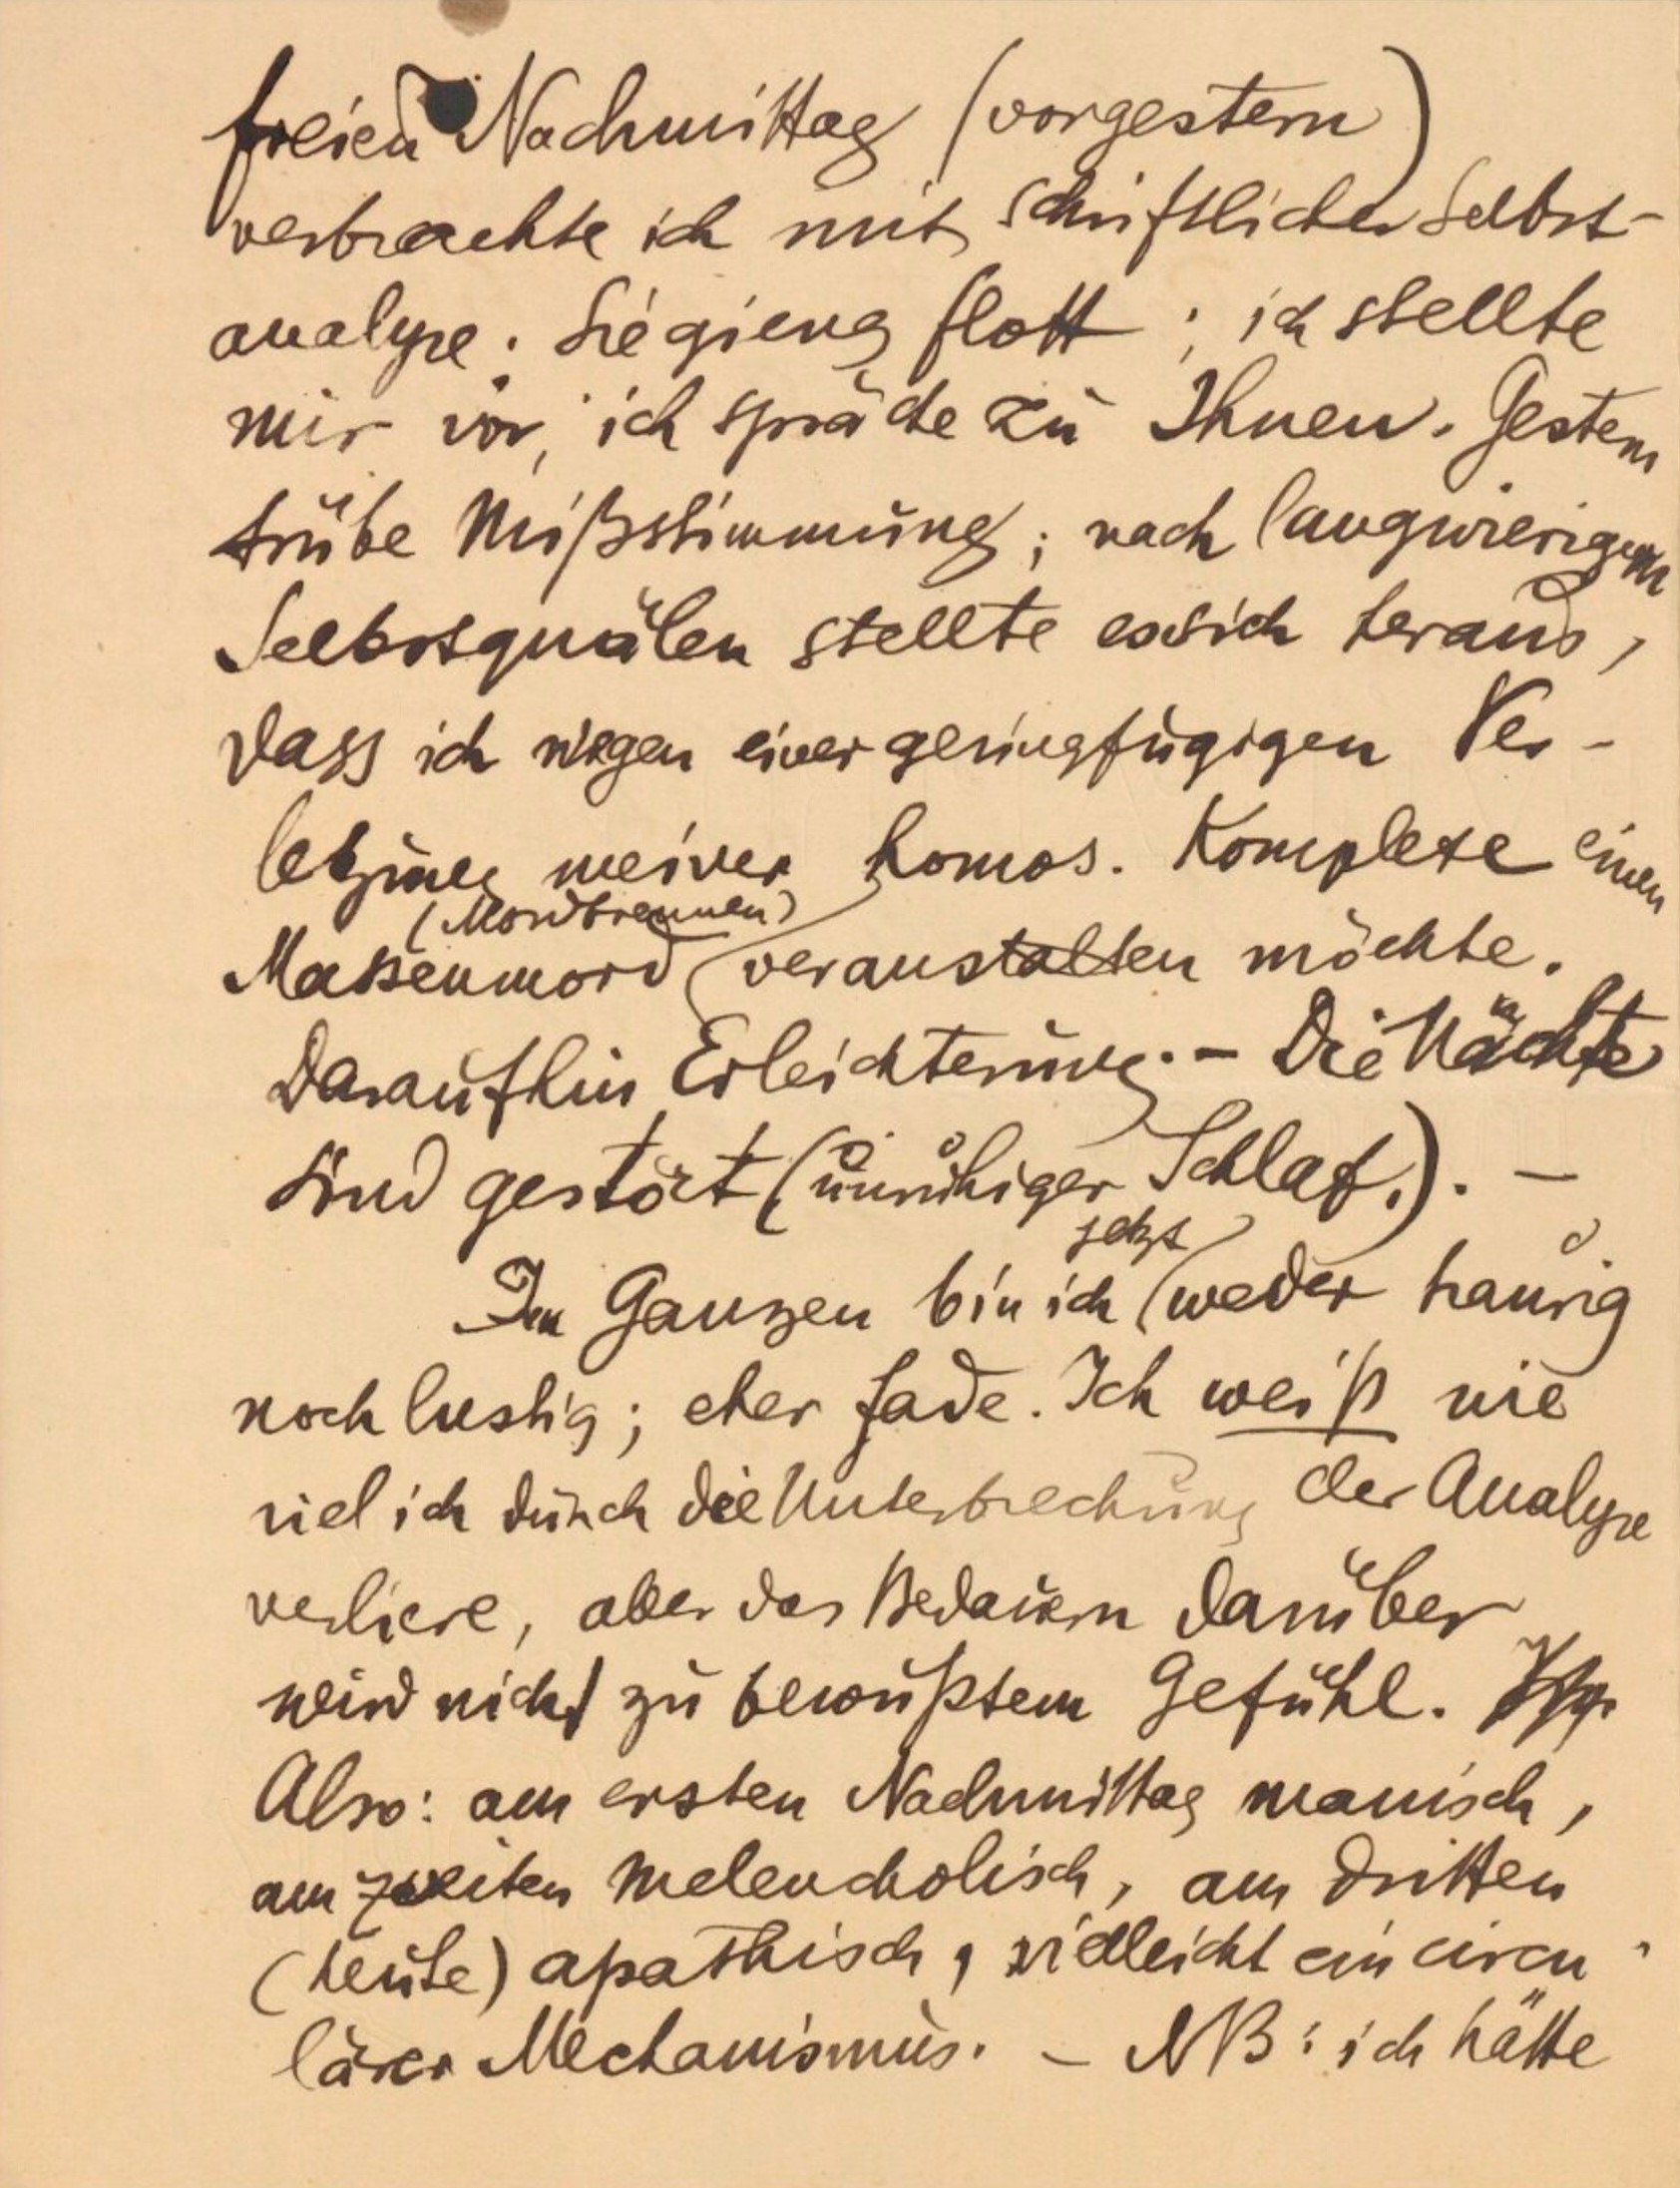 freien Nachmittag (vorgestern)
verbrachte ich mit schriftlicher Selbst-
analyse. Sie gieng flott; ich stellte
mir vor, ich spräche zu Ihnen. Gestern
trübe Mißstimmung; nach langwierigem
Selbstquälen stellte es sich heraus,
dass ich wegen einer geringfügigen Ver-
letzung meiner homos. Komplexe einen
(Mordbrennen)
Massenmord veranstalten möchte.
Daraufhin Erleichterung. – Die Nächte
sind gestört (unruhiger Schlaf.). –
jetzt
Im Ganzen bin ich weder traurig
noch lustig; eher fade. Ich weiß wie
viel ich durch die Unterbrechung der Analyse
verliere, aber das Bedauern darüber
wird nicht zu bewußtem Gefühl.
Also: am ersten Nachmittag manisch,
am zweiten melencholisch, am dritten
(heute) apathisch, vielleicht ein circu-
lärer Mechanismus. – NB: ich hätte